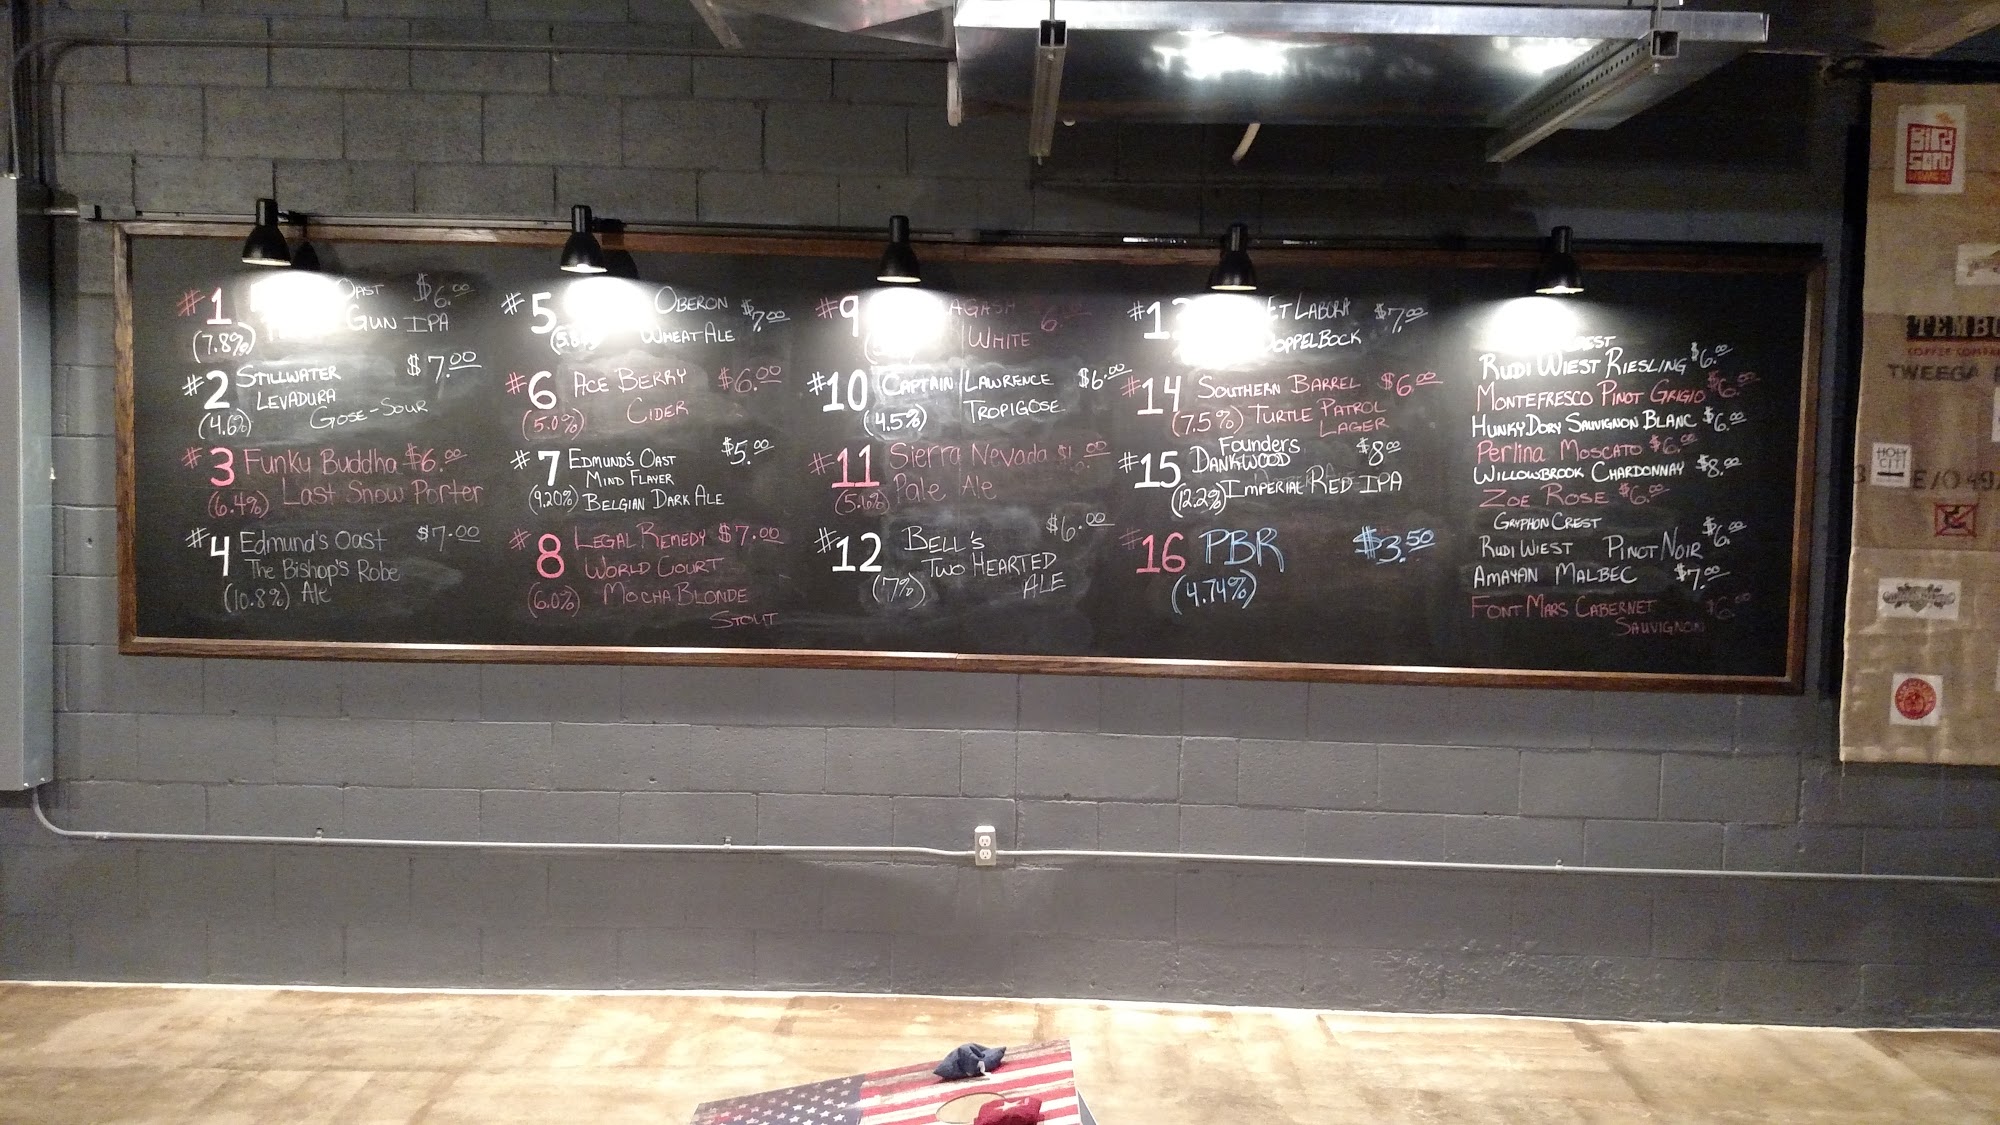 #1 OAST $6.00
GUN IPA
(7.8%)
#2 STILLWATER $7.00
LEVADURA
(4.6%) GOSE-SOUR
#3 Funky Buddha $6.00
(6.4%) Last Snow Porter
#4 Edmund's Oast $7.00
The Bishop's Robe
(10.8%) Ale
#5 OBERON $7.00
WHEAT ALE
#6 ACE BERRY $6.00
(5.0%) CIDER
#7 EDMUND'S OAST $5.00
MIND FLAYER
(9.20%) BELGIAN DARK ALE
#8 LEGAL REMEDY $7.00
WORLD COURT
(6.0%) MOCHA BLONDE
STOUT
#9 AGASH 6.00
WHITE
#10 CAPTAIN LAWRENCE $6.00
(4.5%) TROPIGOSE
#11 Sierra Nevada
(5.6%) Pale Ale
#12 BELL'S $6.00
TWO HEARTED
(7%) ALE
ET LABORA $7.00
DOPPELBOCK
#14 SOUTHERN BARREL $6.00
(7.5%) TURTLE PATROL
LAGER
#15 Founders $8.00
DANKWOOD
(12.2%) IMPERIAL RED IPA
#16 PBR $3.50
(4.74%)
RUDI WIEST RIESLING $6.00
MONTEFRESCO PINOT GRIGIO $6.00
HUNKY DORY SAUVIGNON BLANC $6.00
Perlina MOSCATO $6.00
WILLOWBROOK CHARDONNAY $8.00
ZOE ROSE $6.00
GRYPHON CREST
RUDI WIEST PINOT NOIR $6.00
AMAYAN MALBEC $7.00
FONT MARS CABERNET $6.00
SAUVIGNON
BIRD
SONG
TEMBO
COFFEE COMPA
TWEEGA
HOLY
CITY
E/049